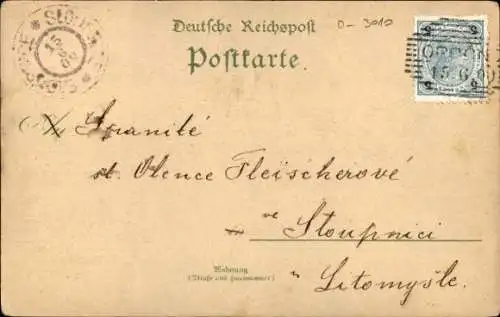 Deutsche Reichspost
Postkarte.
D-3010
15 6 00
Spanilé
sl. Olence Fleischerové
ve Sloupnici
u Litomyšle.
Wohnung
(Straße und Hausnummer)